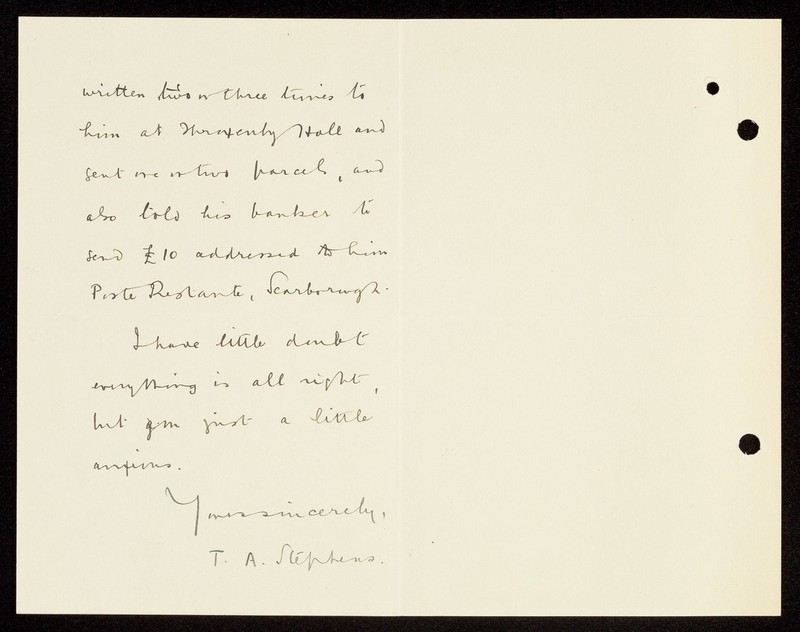 written two or three times to
him at Throxenby Hall and
sent one or two parcels, and
also told his banker to
send £10 addressed to him
Poste Restante, Scarborough.
I have little doubt
everything is all right,
but am just a little
anxious.
Yours sincerely,
T. A. Stephens.